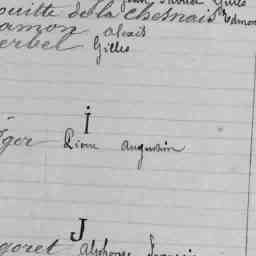 ouitte de la Chesnais Edmon
amon Alexis
erbel Gilles
I
Iger Pierre Augustin
J
goret Alphonse François